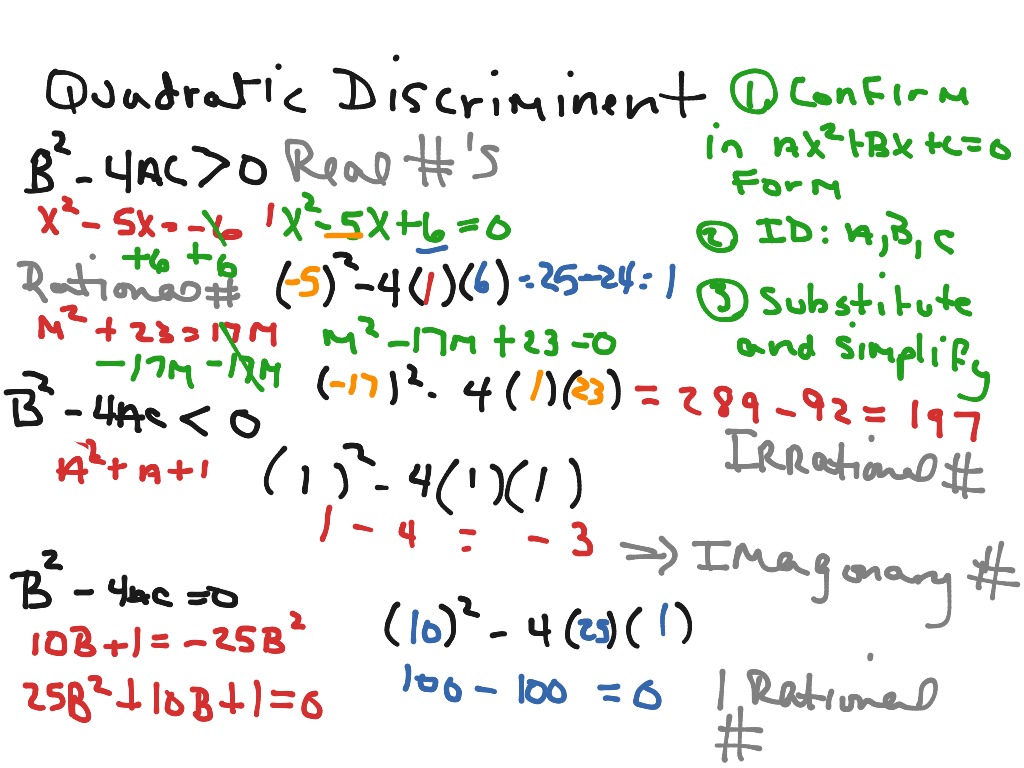 Quadratic Discriminent
① Confirm
in AX²+BX+C=0
Form
② ID: A, B, C
③ Substitute
and simplify
B² - 4AC > 0 Real #'s
X² - 5X = -6
+6 +6
1X² - 5X + 6 = 0
Rational #
(-5)² - 4(1)(6) = 25 - 24 = 1
M² + 23 = 17M
-17M -17M
M² - 17M + 23 = 0
(-17)² - 4(1)(23) = 289 - 92 = 197
IRRational #
B² - 4AC < 0
A² + A + 1
(1)² - 4(1)(1)
1 - 4 = -3 => IMagonary #
B² - 4AC = 0
10B + 1 = -25B²
25B² + 10B + 1 = 0
(10)² - 4(25)(1)
100 - 100 = 0
1 Rational
#